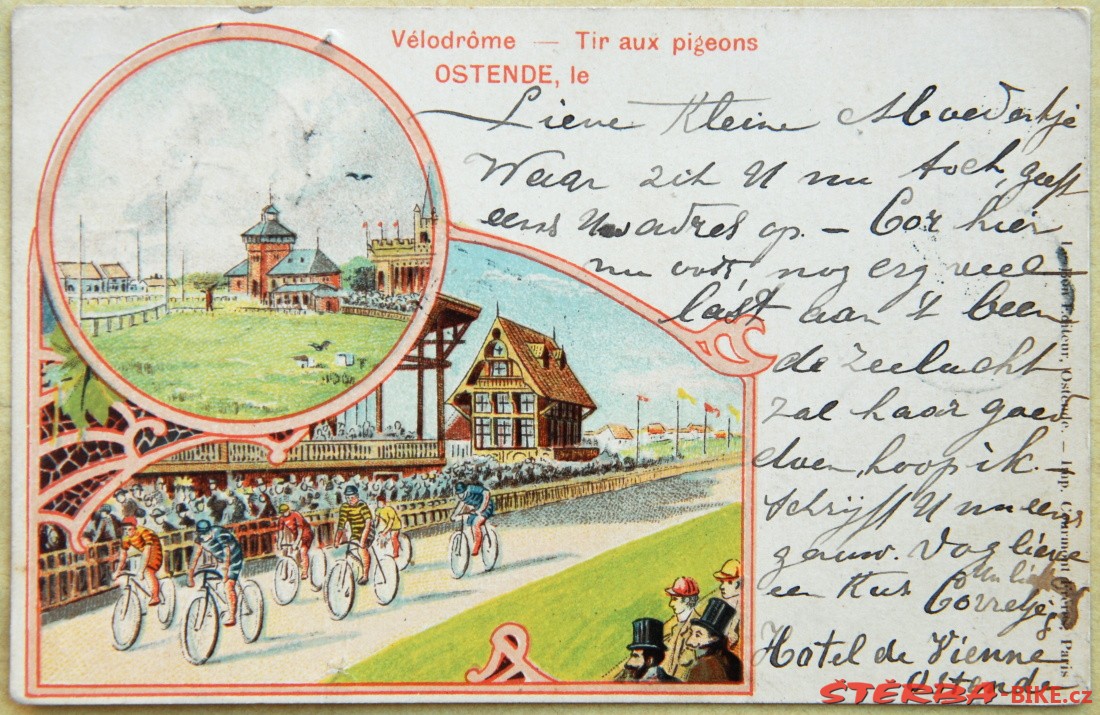 Vélodrôme — Tir aux pigeons
OSTENDE, le
Lieve Kleine Moedertje
Waar zit U nu toch, geeft
eens Uw adres op. – Cor hier
nu ook nog erg veel
last aan 't been
de zeelucht
zal haar goed
doen, hoop ik. –
Schrijft U nu eens
gauw. Dag lieve
een Kus
Hotel de Vienne
Ostende
Editeur, Ostende. — Imp. Paris
ŠTĚRBA-BIKE.cz